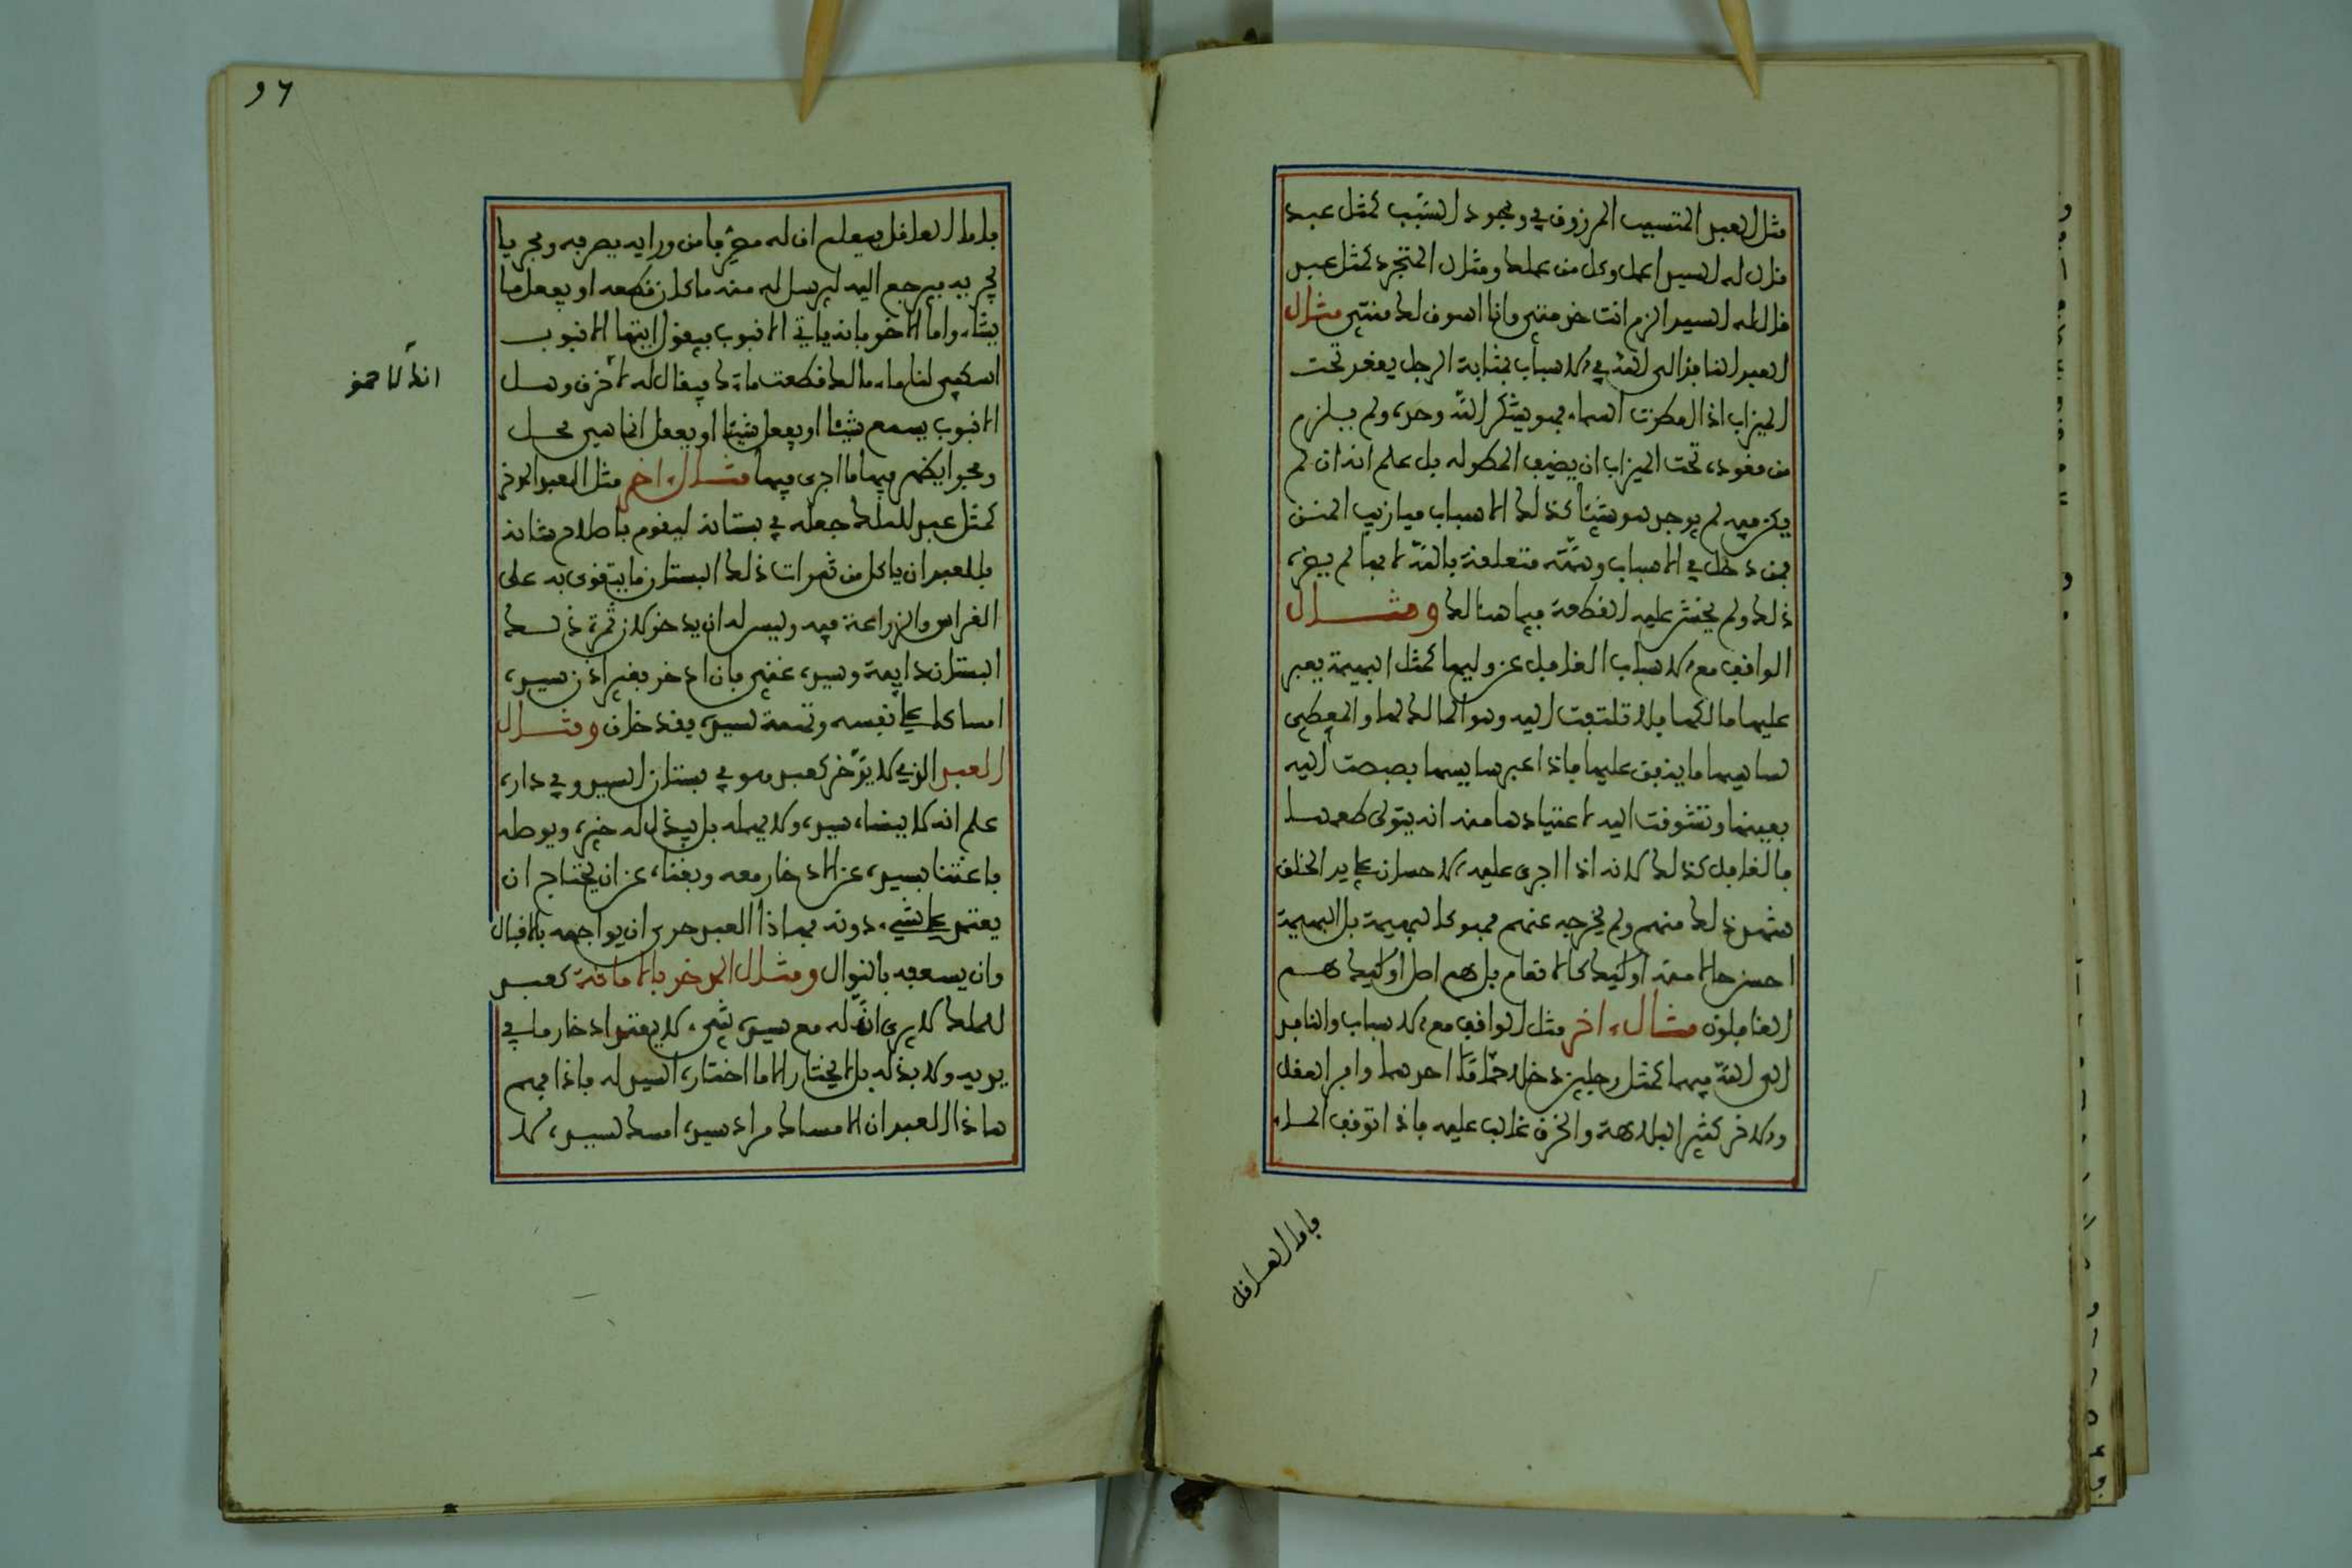 مثل العبد المتسبب المرزوق في وجود السبب كمثل عبد
قال له السيد اعمل وكل من عملك ومثال المتجرد كمثل عبد
قال له السيد الزم انت خدمتي وانا اسوق لك منتي مثال
العبد الناظر الى الله في الاسباب بمثابة الرجل يقعد تحت
الميزاب اذا امطرت السماء فهو يشكر الله وحده ولم يلزم
من قعوده تحت الميزاب ان يضيف المطر له بل علم انه ان لم
يكن فيه لم يوجد هو شيئا كذلك الاسباب ميازيب المنن
فمن دخل في الاسباب وهمته متعلقة بالله لا بها لم يضره
ذلك ولم يخش عليه القطعة فيما هنالك ومثال
الواقف مع الاسباب الغافل عن وليها كمثل البهيمة يعبر
عليها مالكها فلا تلتفت اليه وهو المالك لها والمعطي
لسايسها ما ينفق عليها فاذا عبر سايسها بصبصت اليه
بعينها وتشوفت اليه لاعتيادها منه انه يتولى طعمها
فالغافل كذلك لانه اذا اجرى عليه الاحسان على يد الخلق
شهد ذلك منهم ولم يخرجه عنهم فهو كالبهيمة بل البهيمة
احسن حالا منه اوليك كالانعام بل هم اضل اوليك هم
الغافلون مثال اخر مثل الواقف مع الاسباب والنافذ
الى الله فيها كمثل رجلين دخلا حماما احدهما وافر العقل
والاخر كثير البلاهة والخرق غالب عليه فاذا توقف الماء
فاما العاقل
96
فاما العاقل فيعلم ان له مجريا من ورايه يصرفه ومجريا
يجريه فيرجع اليه ليرسل له منه ما كان قطعه او يفعل ما
يشاء واما الاخر فانه ياتي الانبوب فيقول ايتها الانبوب
اسكبي لنا ماء مالك قطعت ماءك فيقال له لاخرق وهل
انك لاحمق
الانبوب يسمع شيئا او يفعل شيئا او يفعل انما هي محل
ومجرا يظهر فيها ما اجري فيها مثال اخر مثل العبد المدخر
كمثل عبد للملك جعله في بستانه ليقوم باصلاح شانه
فللعبد ان ياكل من ثمرات ذلك البستان ما يتقوى به على
الغراس والزراعة فيه وليس له ان يدخر لان ثمرة ذلك
البستان دايمة وسيده غني فان ادخر بغير اذن سيده
امساكا على نفسه وتهمة لسيده فقد خان ومثال
العبد الذي لا يدخر كعبد هو في بستان السيد وفي داره
علم انه لا ينساه سيده ولا يهمله بل يبذل له خيره ويوصله
فاغتنا بسيده عن الادخار معه وبغناه عن ان يحتاج ان
يعتمد على شيء دونه فهاذا العبد حري ان يواجهه بالاقبال
وان يسعفه بالنوال ومثال المدخر بالامانة كعبد
للملك لا يرى ان له مع سيده شيء لا يعتمد ادخار ما في
يديه ولا بذله بل لا يختار الا ما اختاره السيد له فاذا فهم
هاذا العبد ان الامساك مراد سيده امسك لسيده لا